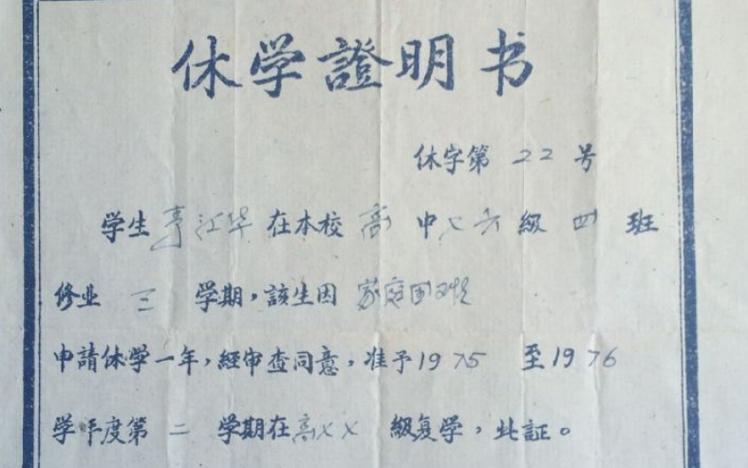 休学證明书
休字第 22 号
学生 江华 在本校 高 中 七六 級 四 班
修业 三 学期，該生因 家庭困难
申請休学一年，經审查同意，准予1975 至1976
学年度第 二 学期在高 級复学，此証。